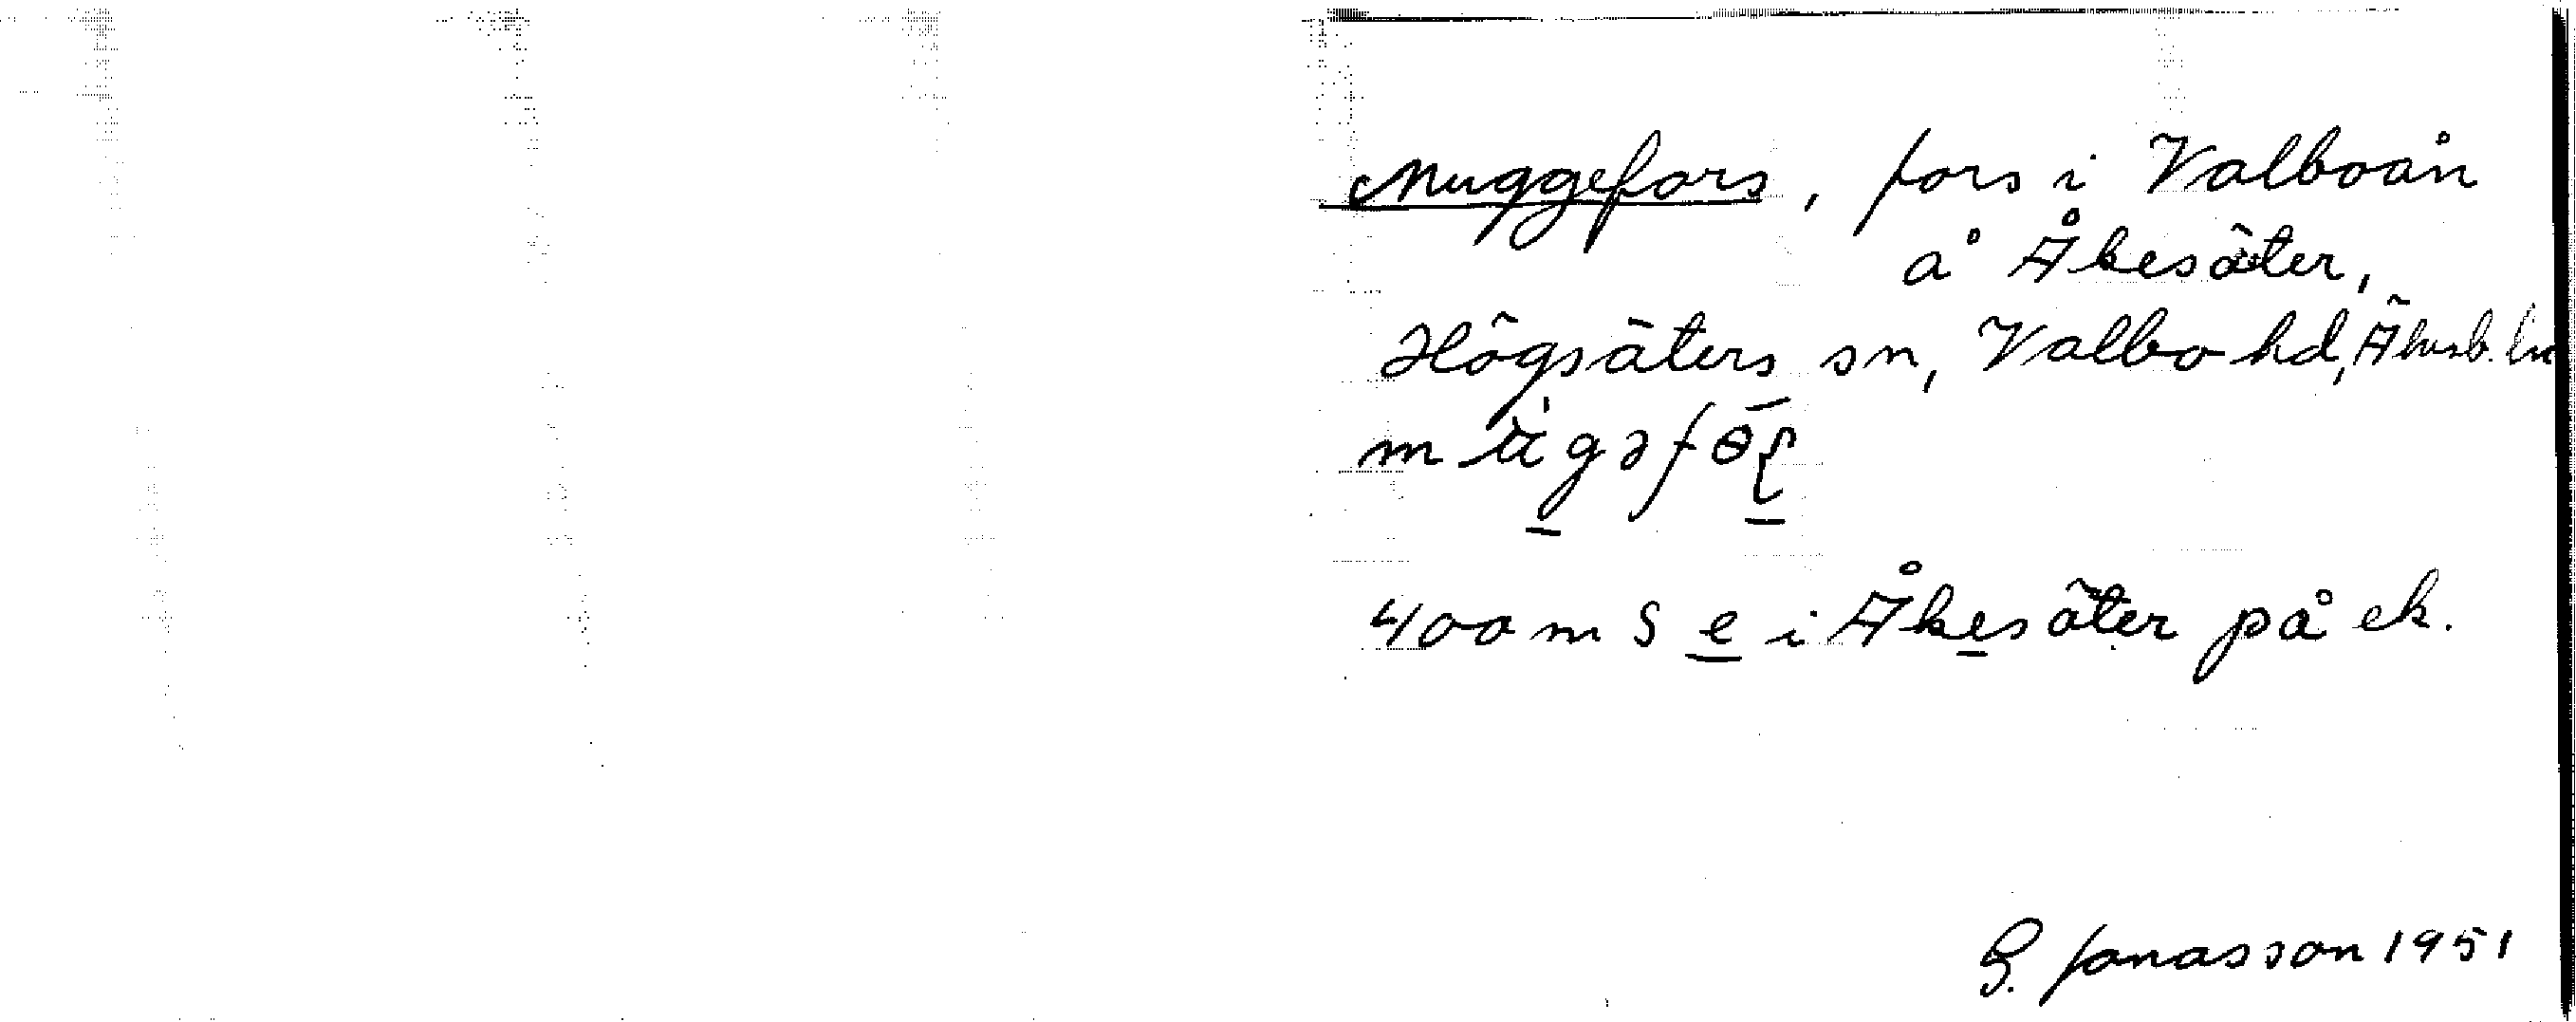 Muggefors, fors i Valboån
å Åkesäter,
Högsäters sn, Valbo hd, Älvsb. län
400 m S e i Åkesäter på ek.
G. Jonasson 1951